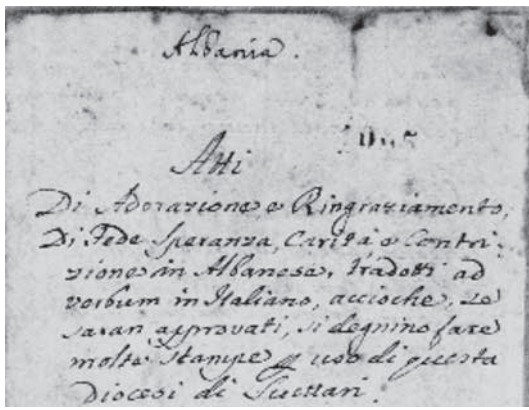 Albania.
Atti
Di Adorazione e Ringraziamento,
Di Fede Speranza, Carità e Contri-
zione in Albanese, tradotti ad
verbum in Italiano, accioche, se
saran approvati, si degnino fare
molte stampe uso di questa
Diocesi di